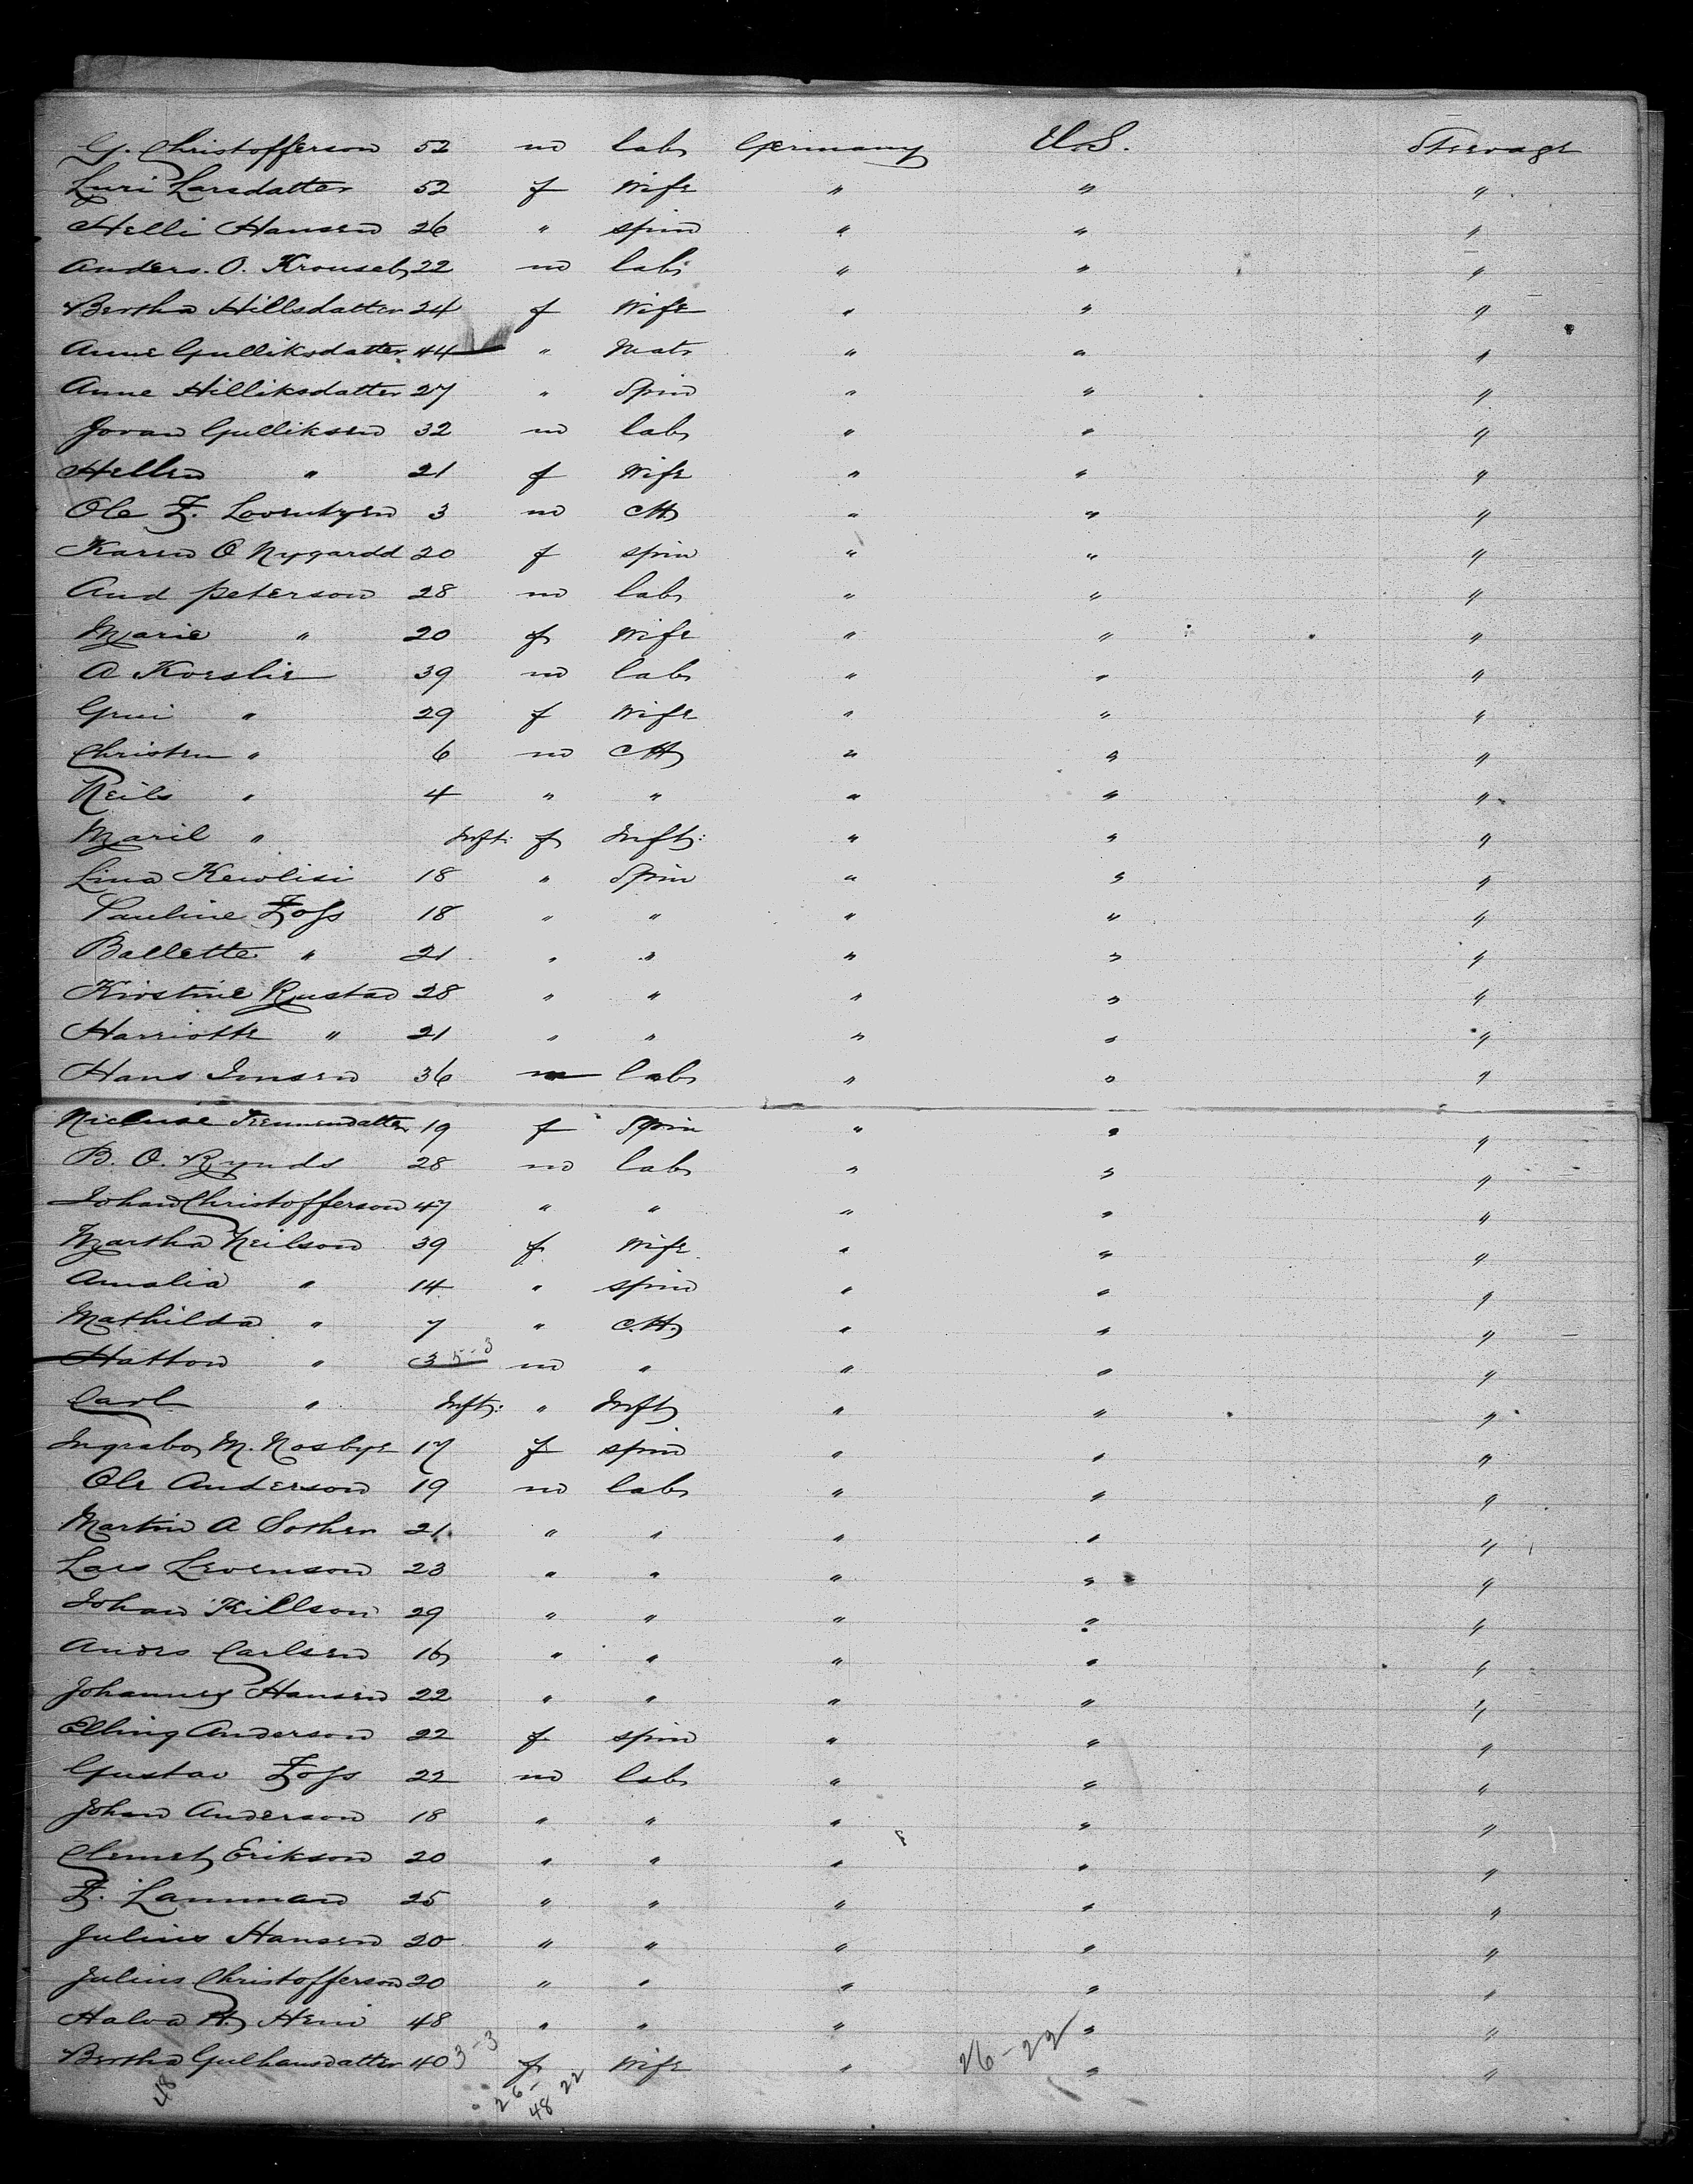 G. Christofferson 52 m lab Germany U.S. Steerage
Luri Larsdatter 52 f Wife " " "
Helli Hansen 26 " spin " " "
Anders. O. Krouseb 22 m lab " " "
Bertha Hillsdatter 24 f Wife " " "
Anne Gulliksdatter 44 " Matr " " "
Anne Hilliksdatter 27 " Spin " " "
Jovan Gulliksen 32 m lab " " "
Hellen " 21 f Wife " " "
Ole F. 3 m CH " " "
Karen O Nygardd 20 f spin " " "
And peterson 28 m lab " " "
Marie " 20 f Wife " " "
A Korslie 39 m lab " " "
Guri " 29 f Wife " " "
Christen " 6 m CH " " "
Neils " 4 " " " " "
Maril " Inft: f Inft: " " "
Lina Kewlisi 18 " Spin " " "
Pauline Foss 18 " " " " "
Ballette " 21 " " " " "
Kirstine Rustad 28 " " " " "
Harriotte " 21 " " " " "
Hans Jmsen 36 m lab " " "
19 f Spin " " "
B. O. Rynds 28 m lab " " "
Johan Christofferson 47 " " " " "
Martha Neilson 39 f Wife " " "
Amalia " 14 " spin " " "
Mathilda " 7 " C.H. " " "
Hatton " 3 5-3 m " " " "
Carl " Inft: " Inft " " "
Ingrabor M. Nosbye 17 f spin " " "
Ole Anderson 19 m lab " " "
Martin A Sother 21 " " " " "
Lars Levenson 23 " " " " "
Johan Killson 29 " " " " "
Andrs Carlsen 16 " " " " "
Johannes Hansen 22 " " " " "
Elling Anderson 22 f spin " " "
Gustav Foss 22 m lab " " "
Johan Anderson 18 " " " " "
Clemet Erikson 20 " " " " "
F. Lamman 25 " " " " "
Julius Hansen 20 " " " " "
Julius Christofferson 20 " " " " "
Halva H. Heni 48 " " " " "
Bertha Gulhansdatter 40 3-3 f Wife " 26-22 " "
48 26-22 48